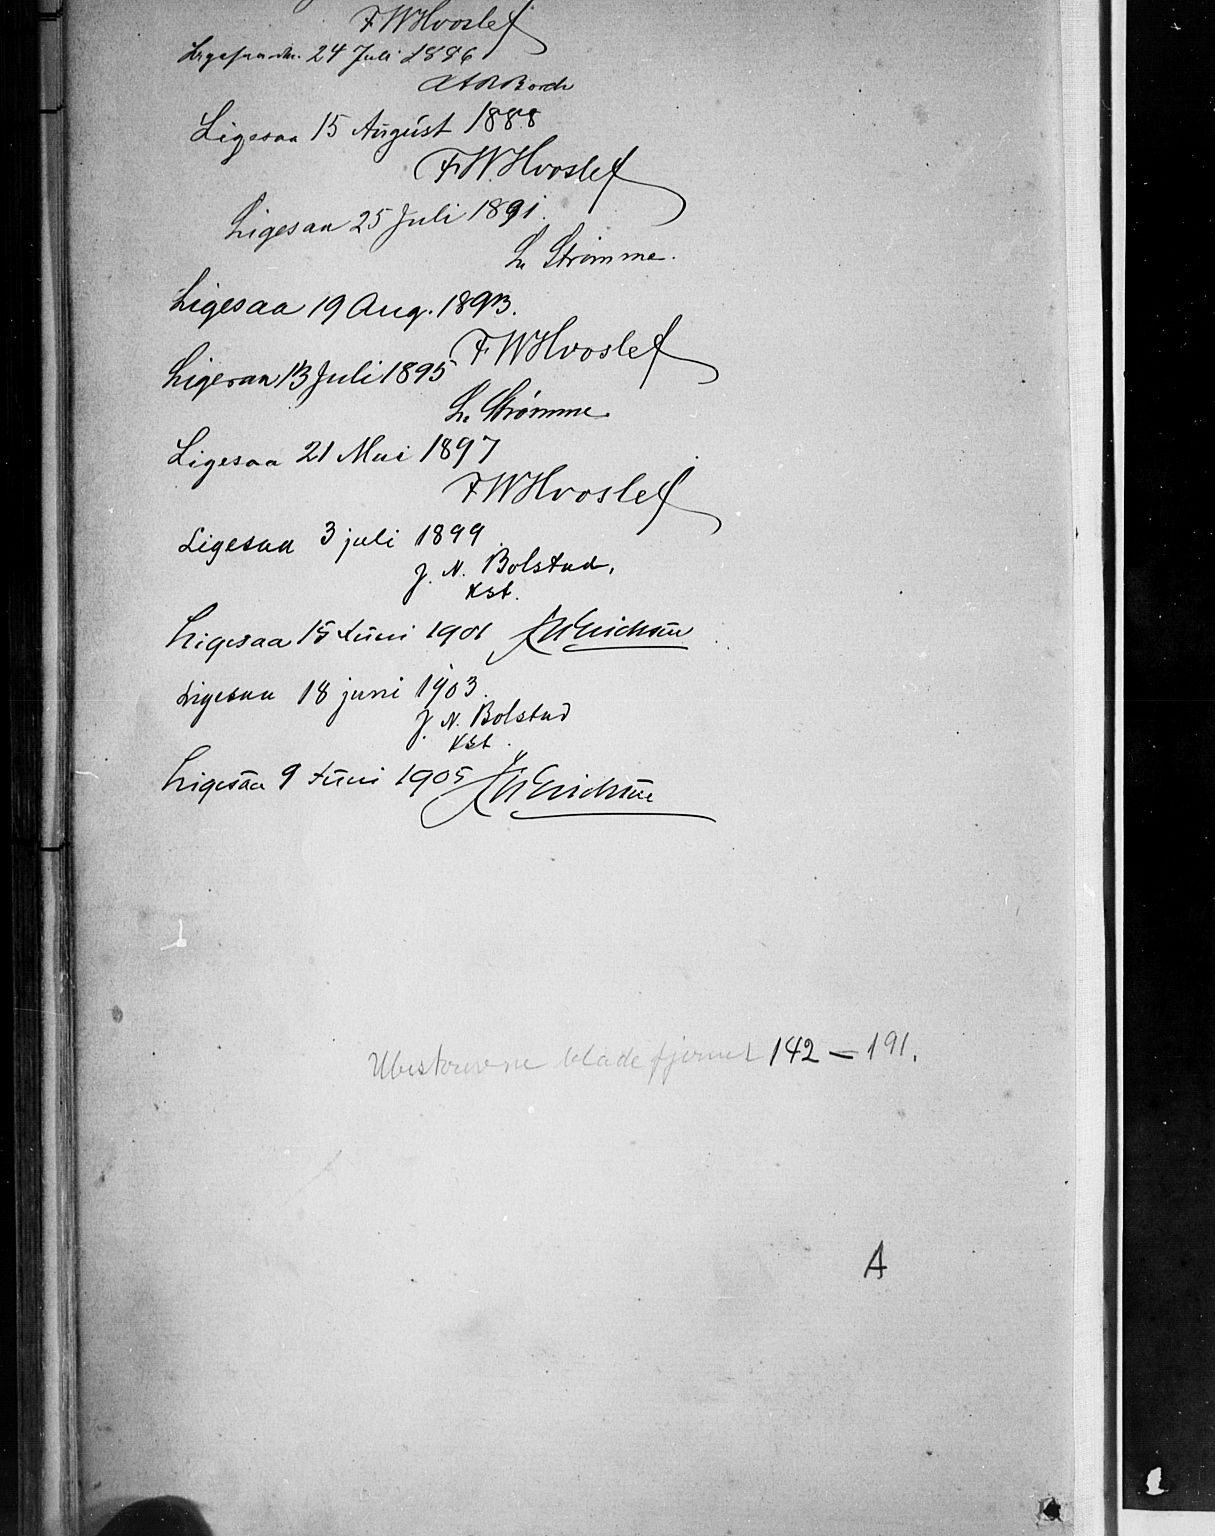 FWHvoslef
24 Juli 1886
Ligesaa 15 August 1888
F.W.Hvoslef
Ligesaa 25 Juli 1891.
L. Strømme.
Ligesaa 19 Aug. 1893.
FWHvoslef
Ligesaa 13 Juli 1895
L. Strømme.
Ligesaa 21 Mai 1897
FWHvoslef
Ligesaa 3 juli 1899
J. N. Bolstad,
Kst.
Ligesaa 15 Juni 1901
Ligesaa 18 juni 1903.
J. N. Bolstad
Kst.
Ligesaa 9 Juni 1905
Ubeskrevne blade fjernet 142 – 191.
A